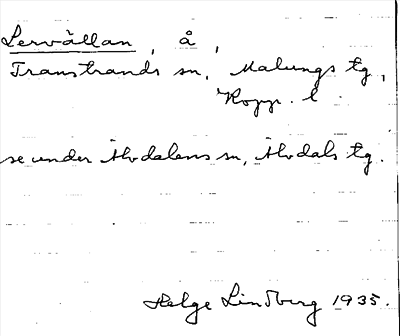 Lervällan, å,
Transtrands sn, Malungs tg,
Kopp. l
se under Älvdalens sn, Älvdals tg.
Helge Lindberg 1935.